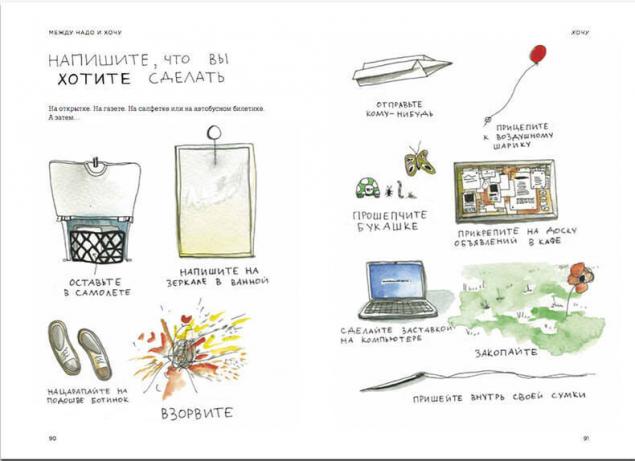 МЕЖДУ НАДО И ХОЧУ
НАПИШИТЕ, ЧТО ВЫ
ХОТИТЕ СДЕЛАТЬ
На открытке. На газете. На салфетке или на автобусном билетике.
А затем...
ОСТАВЬТЕ
В САМОЛЕТЕ
НАПИШИТЕ НА
ЗЕРКАЛЕ В ВАННОЙ
НАЦАРАПАЙТЕ НА
ПОДОШВЕ БОТИНОК
ВЗОРВИТЕ
90
ХОЧУ
ОТПРАВЬТЕ
КОМУ-НИБУДЬ
ПРИЦЕПИТЕ
К ВОЗДУШНОМУ
ШАРИКУ
ПРОШЕПЧИТЕ
БУКАШКЕ
ПРИКРЕПИТЕ НА ДОСКУ
ОБЪЯВЛЕНИЙ В КАФЕ
СДЕЛАЙТЕ ЗАСТАВКОЙ
НА КОМПЬЮТЕРЕ
ЗАКОПАЙТЕ
ПРИШЕЙТЕ ВНУТРЬ СВОЕЙ СУМКИ
91